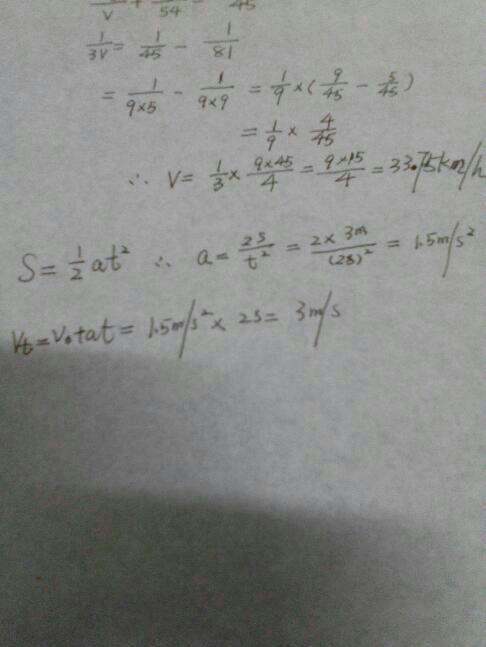 V + 54 = 45
1/3V = 1/45 - 1/81
= 1/9×5 - 1/9×9 = 1/9 × ( 9/45 - 5/45 )
= 1/9 × 4/45
∴ V = 1/3 × 9×45/4 = 9×15/4 = 33.75km/h
S = 1/2 at² ∴ a = 2S/t² = 2× 3m/(2S)² = 1.5m/s²
Vt = V₀+at = 1.5m/s² × 2S = 3m/s